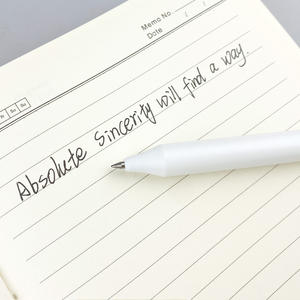 Memo No.
Date / /
Absolute Sincerity will find a way.